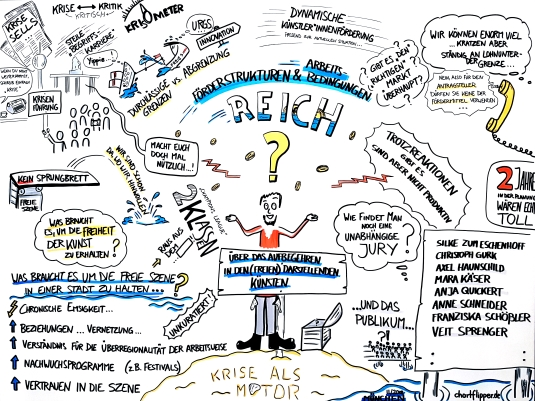 KRISE SELLS
KRISE ↔ KRITIK
KRITISCH
STEILE
BEGRIFFS-
KARRIERE
Yippie
KRISOMETER
URBG
INNOVATION
DURCHLÄSSIGE VS. ABGRENZUNG
GRENZEN
KRISEN
FÜHRUNG
DYNAMISCHE
KÜNSTLER*INNENFÖRDERUNG
FÖRDERSTRUKTUREN &
ARBEITS-
BEDINGUNGEN
REICH
?
GIBT ES DEN
"RICHTIGEN"
MARKT
ÜBERHAUPT?
WIR KÖNNEN ENORM VIEL
... KRATZEN ABER
STÄNDIG AN LOHNUNTER-
GRENZE...
NEIN, ALSO FÜR DEN
ANTRAGSTELLER
DÜRFEN SIE KEINE DER
FÖRDERMITTEL VERWENDEN
MACHT EUCH
DOCH MAL
NÜTZLICH...!
TROTZREAKTIONEN
GIBT ES
SIND ABER NICHT PRODUKTIV
2 JAHRE
WÄREN ECHT
TOLL
KEIN SPRUNGBRETT
FREIE
SZENE
WAS BRAUCHT
ES, UM DIE FREIHEIT
DER KUNST
ZU ERHALTEN?
RAUS AUS
DEN
2 KLASSEN
WIE FINDET MAN
NOCH EINE
UNABHÄNGIGE
JURY?
ÜBER DAS AUFBEGEHREN
IN DEN (FREIEN) DARSTELLENDEN
KÜNSTEN.
WAS BRAUCHT ES UM DIE FREIE SZENE
IN EINER STADT ZU HALTEN...?
CHRONISCHE EMSIGKEIT...
BEZIEHUNGEN ... VERNETZUNG...
VERSTÄNDNIS FÜR DIE ÜBERREGIONALITÄT DER ARBEITSWEISE
NACHWUCHSPROGRAMME (z.B. FESTIVALS)
VERTRAUEN IN DIE SZENE
UNKURATIERT!
...UND DAS
PUBLIKUM...
?!
KRISE ALS
MOTOR
SILKE ZUM ESCHENHOFF
CHRISTOPH GURK
AXEL HAUNSCHILD
MARA KÄSER
ANJA QUICKERT
ANNE SCHNEIDER
FRANZISKA SCHÖßLER
VEIT SPRENGER
chartflipper.de